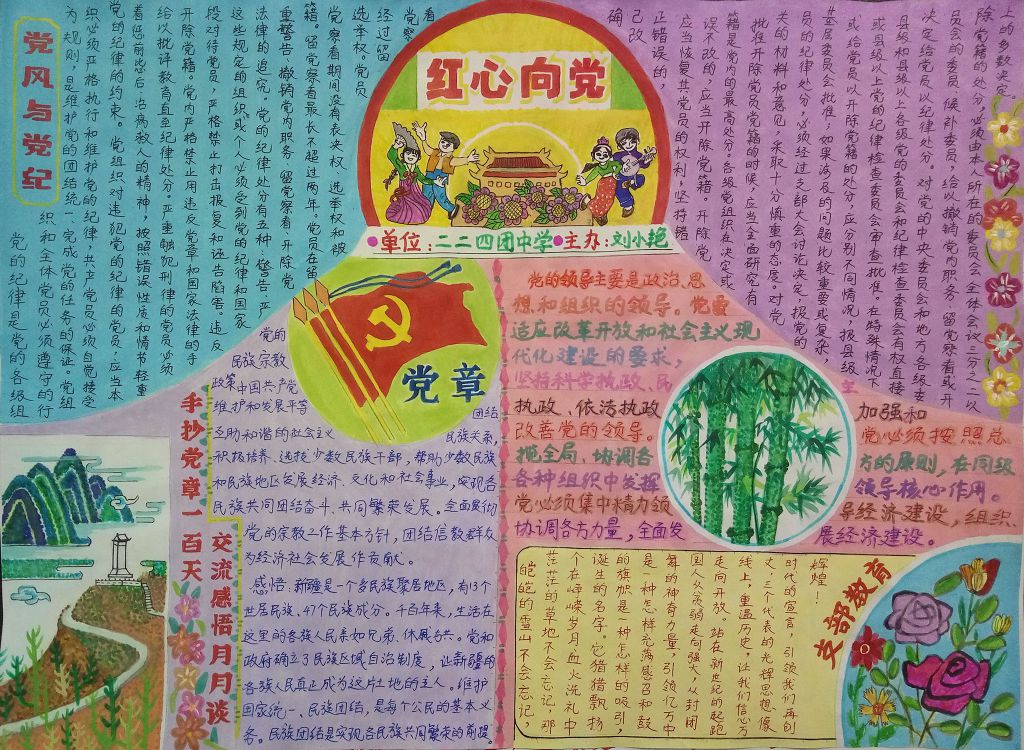 红心向党
单位:二二四团中学 主办:刘小艳
党风与党纪
党的纪律是党的各级组
织和全体党员必须遵守的行
为规则,是维护党的团结统一、完成党的任务的保证。党组
织必须严格执行和维护党的纪律,共产党员必须自觉接受
党的纪律的约束。党组织对违犯党的纪律的党员,应当本
着惩前毖后、治病救人的精神,按照错误性质和情节轻重
给以批评教育直至纪律处分。严重触犯刑律的党员必须
开除党籍。党内严格禁止用违反党章和国家法律的手
段对待党员,严格禁止打击报复和诬告陷害。违反
这些规定的组织或个人必须受到党的纪律和国家
法律的追究。党的纪律处分有五种:警告、严
重警告、撤销党内职务、留党察看、开除党
籍。留党察看最长不超过两年。党员在留
党察看期间没有表决权、选举权和被
选举权。党员
经过留
党察
看
确
己改
正错误的,
应当恢复其党员的权利;坚持错
误不改的,应当开除党籍。开除党
籍是党内的最高处分。各级党组织在决定或
批准开除党员党籍的时候,应当全面研究有
关的材料和意见,采取十分慎重的态度。对党
员的纪律处分,必须经过支部大会讨论决定,报党的
基层委员会批准;如果涉及的问题比较重要或复杂,
或给党员以开除党籍的处分,应分别不同情况,报县级
或县级以上党的纪律检查委员会审查批准。在特殊情况下
县级和县级以上各级党的委员会和纪律检查委员会有权直接
决定给党员以纪律处分。对党的中央委员会和地方各级委
员会的委员、候补委员,给以撤销党内职务、留党察看或开
除党籍的处分,必须由本人所在的委员会全体会议三分之二以
上的多数决定。
党章
手抄党章一百天
交流感悟月月谈
党的
民族宗教
政策 中国共产党
维护和发展平等
团结
互助和谐的社会主义 民族关系,
积极培养、选拔少数民族干部,帮助少数民族
和民族地区发展经济、文化和社会事业,实现各
民族共同团结奋斗、共同繁荣发展。全面贯彻
党的宗教工作基本方针,团结信教群众
为经济社会发展作贡献。
感悟:新疆是一个多民族聚居地区,有13个
世居民族,47个民族成分。千百年来,生活在
这里的各族人民亲如兄弟、休戚与共。党和
政府确立了民族区域自治制度,让新疆的
各族人民真正成为这片土地的主人。维护
国家统一、民族团结,是每个公民的基本义
务。民族团结是实现各民族共同繁荣的前提。
党的领导主要是政治、思
想和组织的领导。党要
适应改革开放和社会主义现
代化建设的要求,
坚持科学执政、民主
执政、依法执政 加强和
改善党的领导。 党必须按照总
揽全局、协调各 方的原则,在同级
各种组织中发挥 领导核心作用。
党必须集中精力领 导经济建设,组织、
协调各方力量,全面发 展经济建设。
支部教育
皑皑的雪山不会忘记,
茫茫的草地不会忘记,那
个在峥嵘岁月、血火洗礼中
诞生的名字。它猎猎飘扬
的旗帜是一种怎样的吸引,
是一种怎样充满感召和鼓
舞的神奇力量,引领亿万中
国人从贫弱走向强大,从封闭
走向开放。站在新世纪的起跑
线上,重温历史,让我们信心万
丈;三个代表的光辉思想像
时代的宣言,引领我们再创
辉煌!